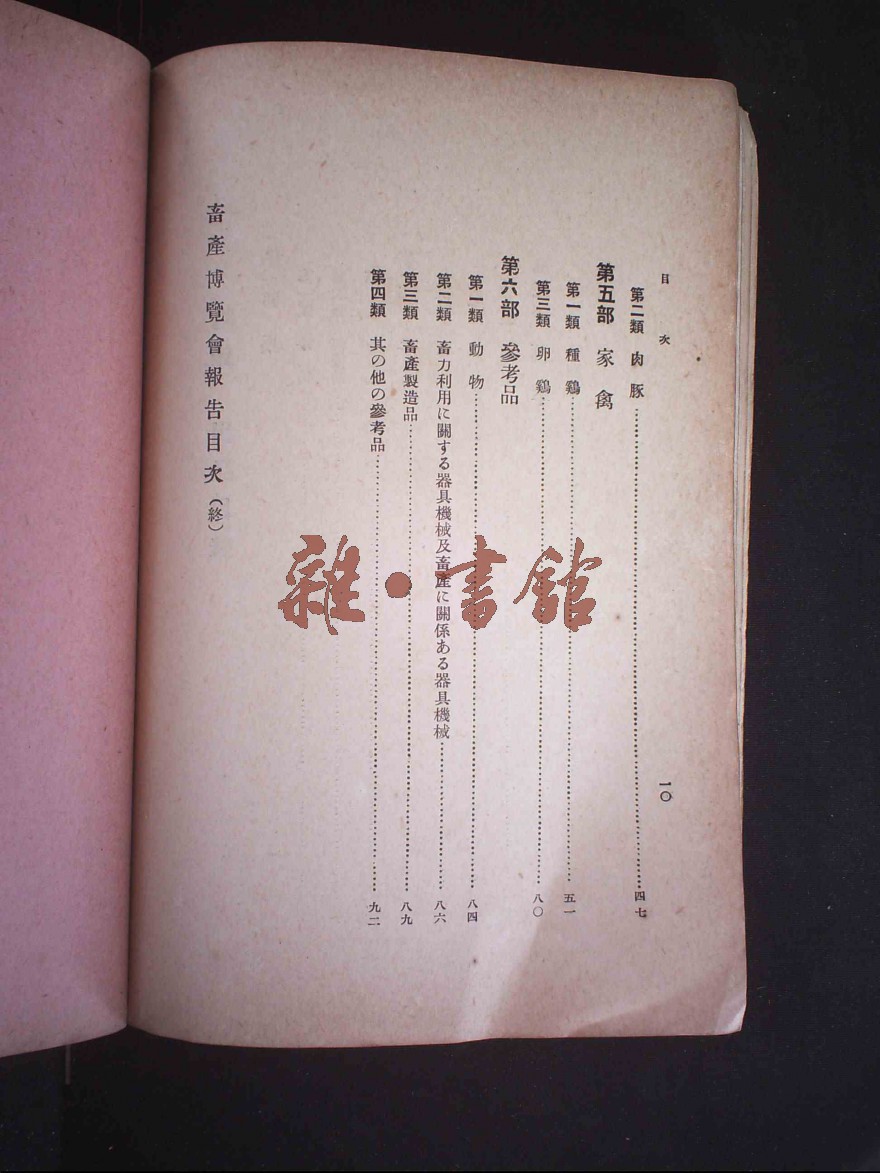 目次
一〇
第二類 肉豚……四七
第五部 家禽
第一類 種鷄……五一
第三類 卵鷄……八〇
第六部 參考品
第一類 動物……八四
第二類 畜力利用に關する器具機械及畜產に關係ある器具機械……八六
第三類 畜產製造品……八九
第四類 其の他の參考品……九二
畜產博覽會報吿目次(終)
雜·書館